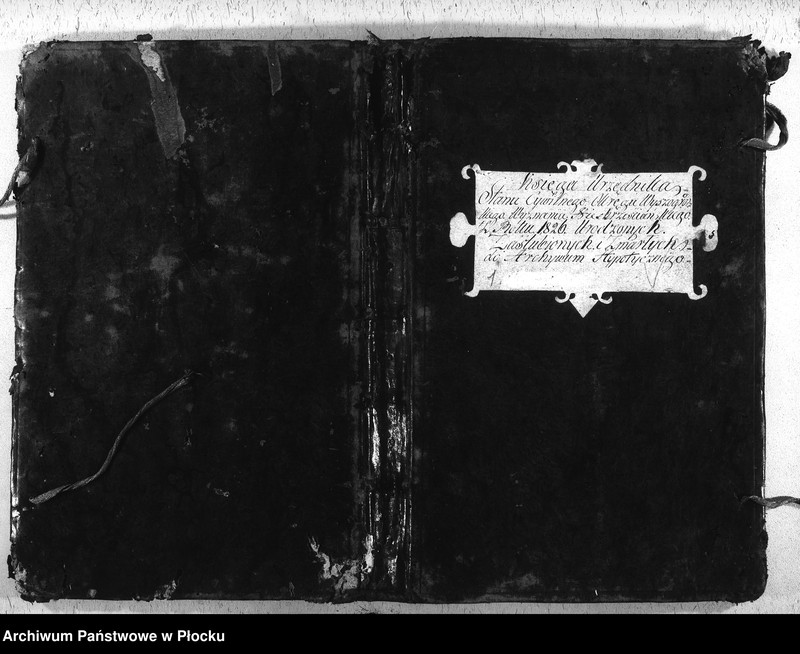 Księga Urzędnika
Stanu Cywilnego Okręgu Wyszogrodz
kiego Wyznania Nie Chrześcian Miasta
Z Roku 1826 Urodzonych.
Zaslubionych i Zmarłych
do Archywum Hypotycznego
1
Archiwum Państwowe w Płocku